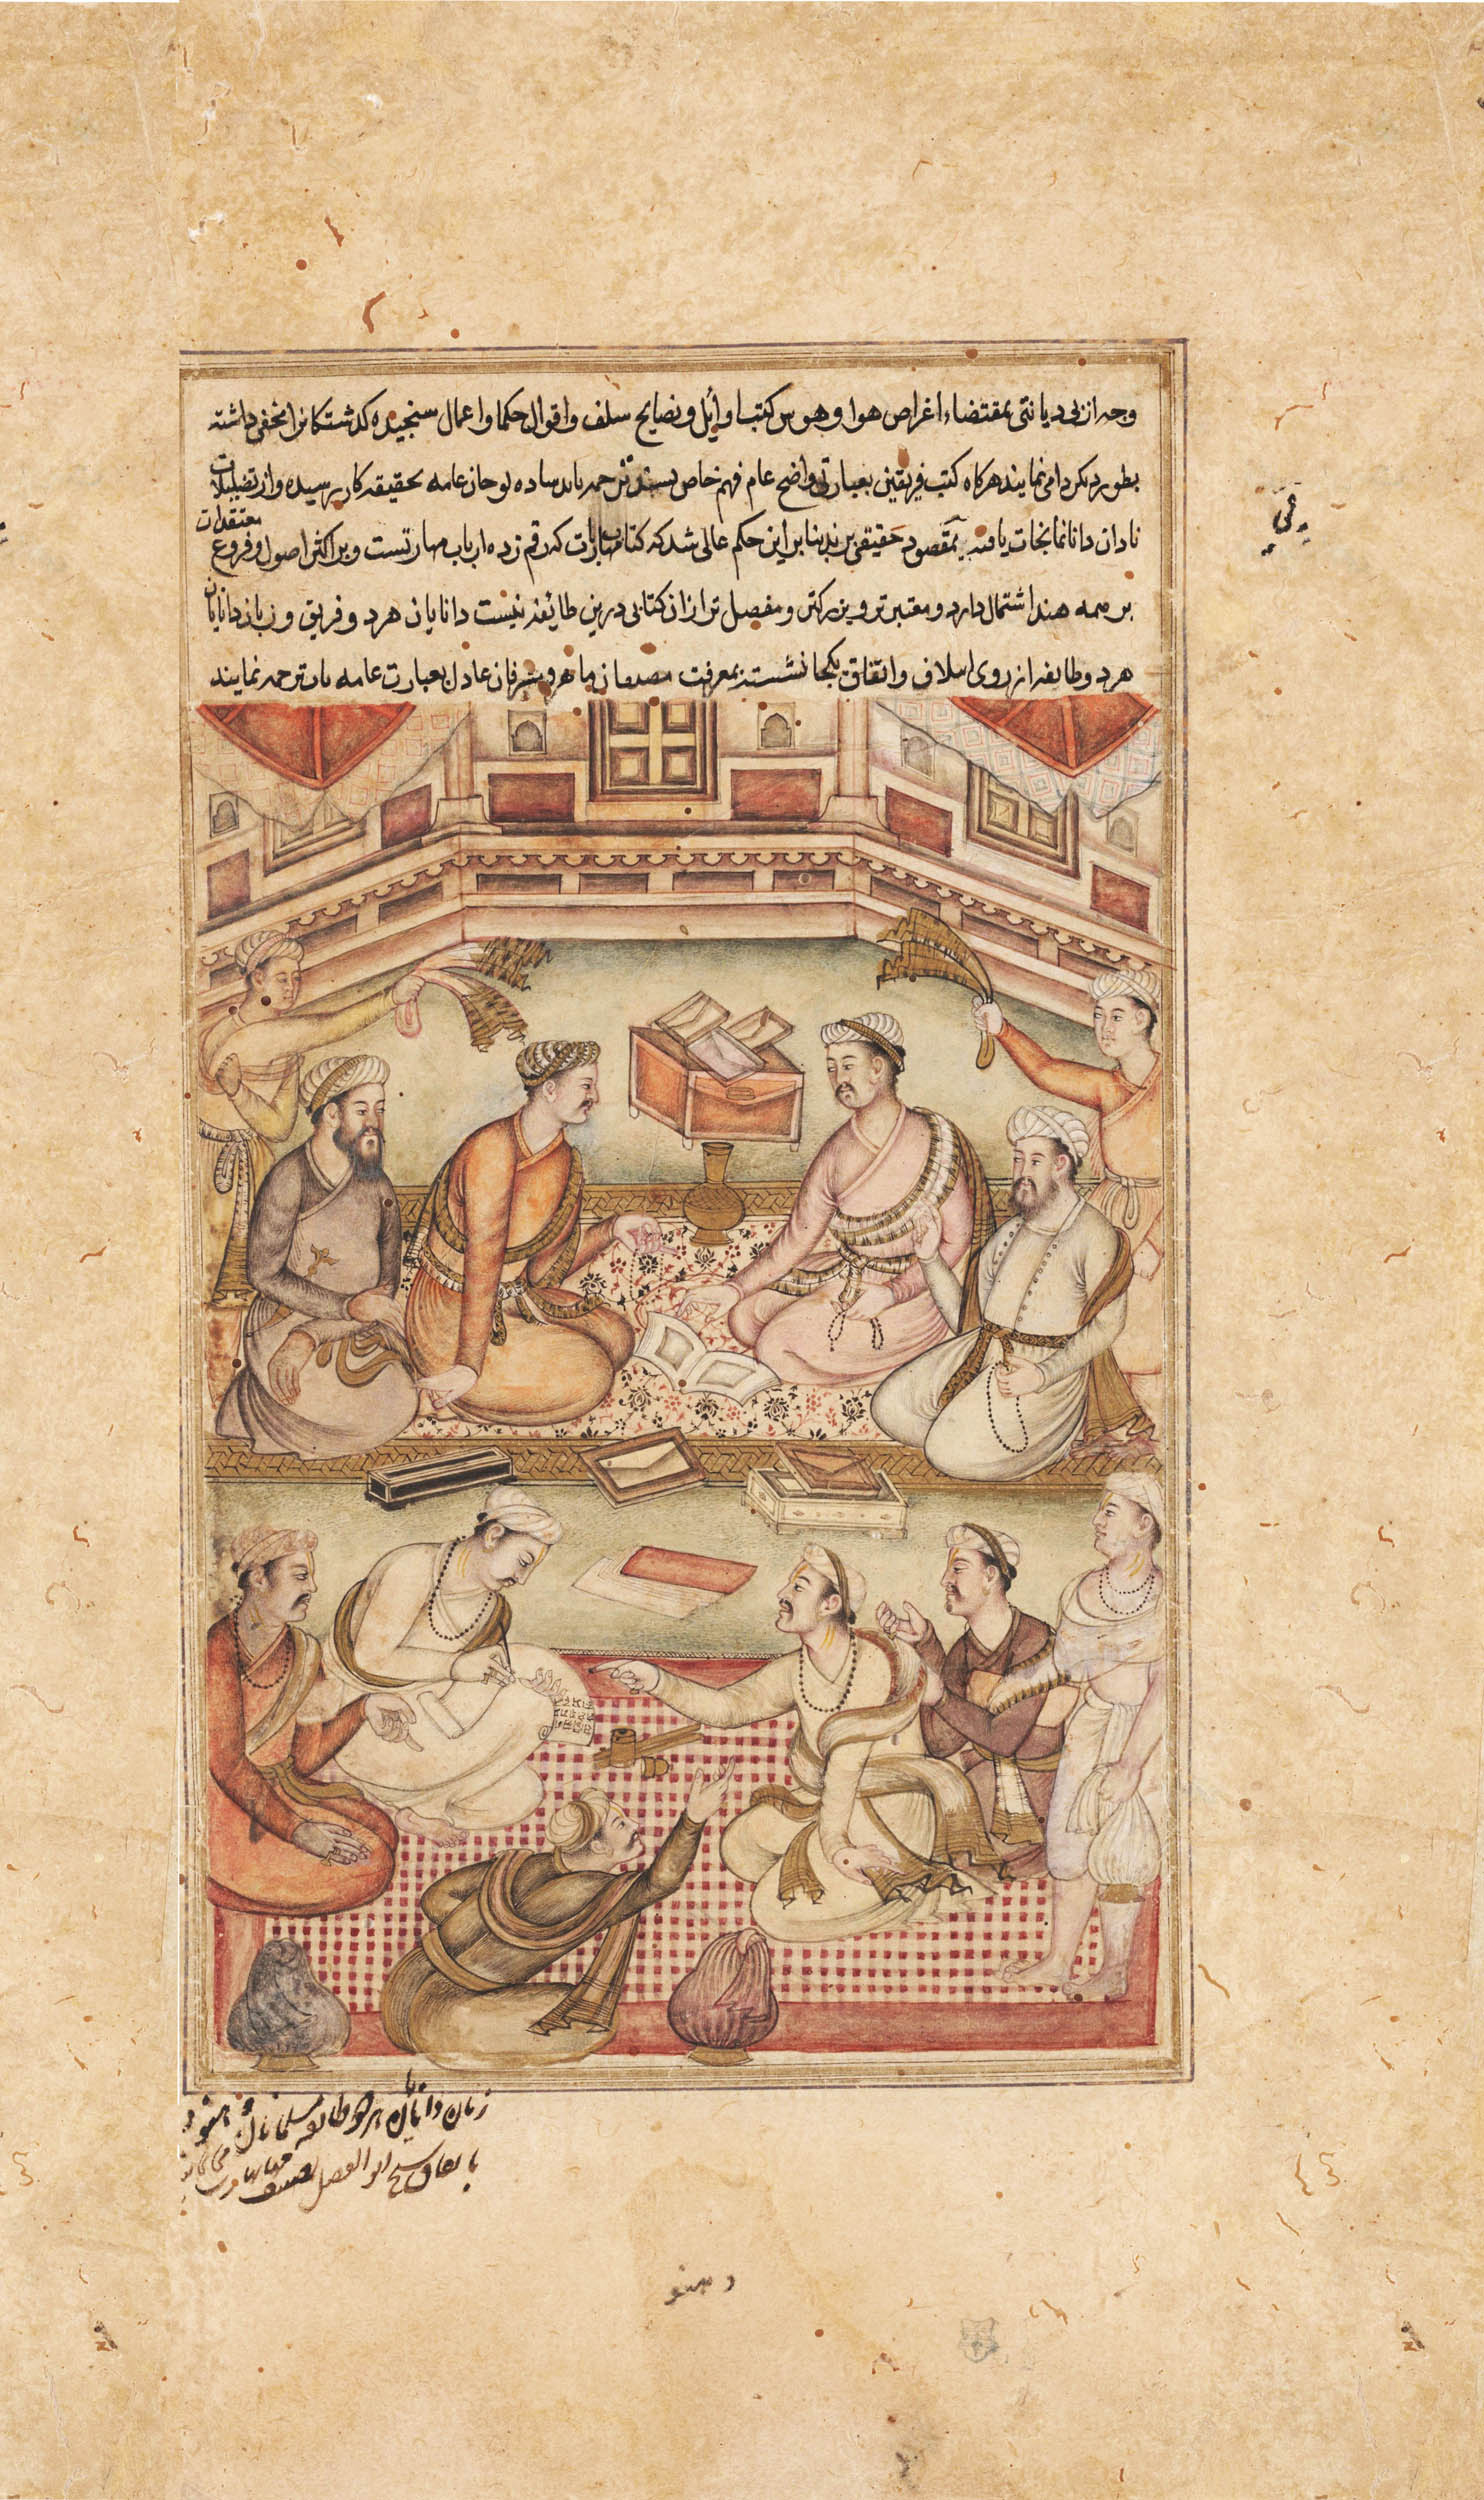 وجه از بی دیانتی بمقتضاء اغراض هوا و هوس کتب اوایل و نصایح سلف و اقوال حکما و اعمال سنجیده کذشتکانرا مخفی داشته
بطور دیکر وامی نمایند هرکاه کتب فریقین بعبارتی واضح عام فهم خاص پسند ترجمه یابد ساده لوحان عامه بحقیقة کار رسیده و از تضلیلات
نادان دانانما نجات یافته بمقصود حقیقی برند بنا برین حکم عالی شد که کتاب مهابارت که رقم زده ارباب مهارتست و بر اکثر اصول و فروع معتقدات
برهمه هند اشتمال دارد و معتبرتر و بزرکتر و مفصل تر از ان کتابی درین طائفه نیست دانایان هر دو فریق و زبان دانایان
هر دو طایفه از روی اسلاف و اتفاق یکجا نشسته بمعرفت منصفان ماهر و مشرفان عادل بعبارت عامه یاب ترجمه نمایند
زبان دانایان هر دو طایفه مسلمانان و هنود
باتفاق شیخ ابو الفضل تصنیف مهابهارت می نمایند